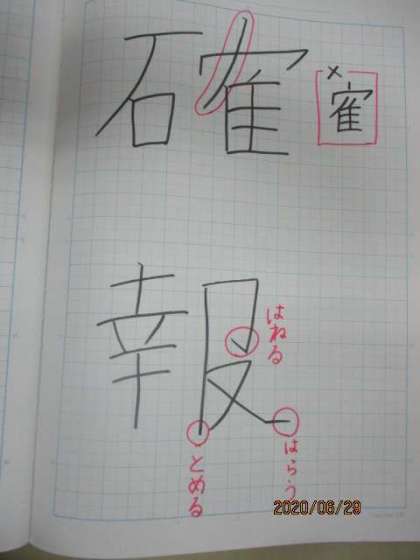 確
×
隺
報
はねる
とめる
はらう
2020/06/29